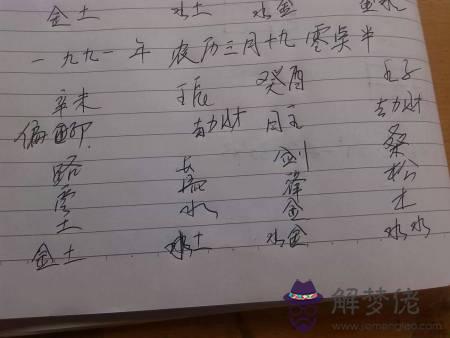 金土 水土 水金 金水
一九九一年 农历三月十九 零点半
辛未 壬辰 癸酉 壬子
偏印 劫财 日主 劫财
路 长 剑 桑
旁 流 锋 松
土 水 金 木
金土 水土 水金 水水
解梦佬
www.jiemenglao.com